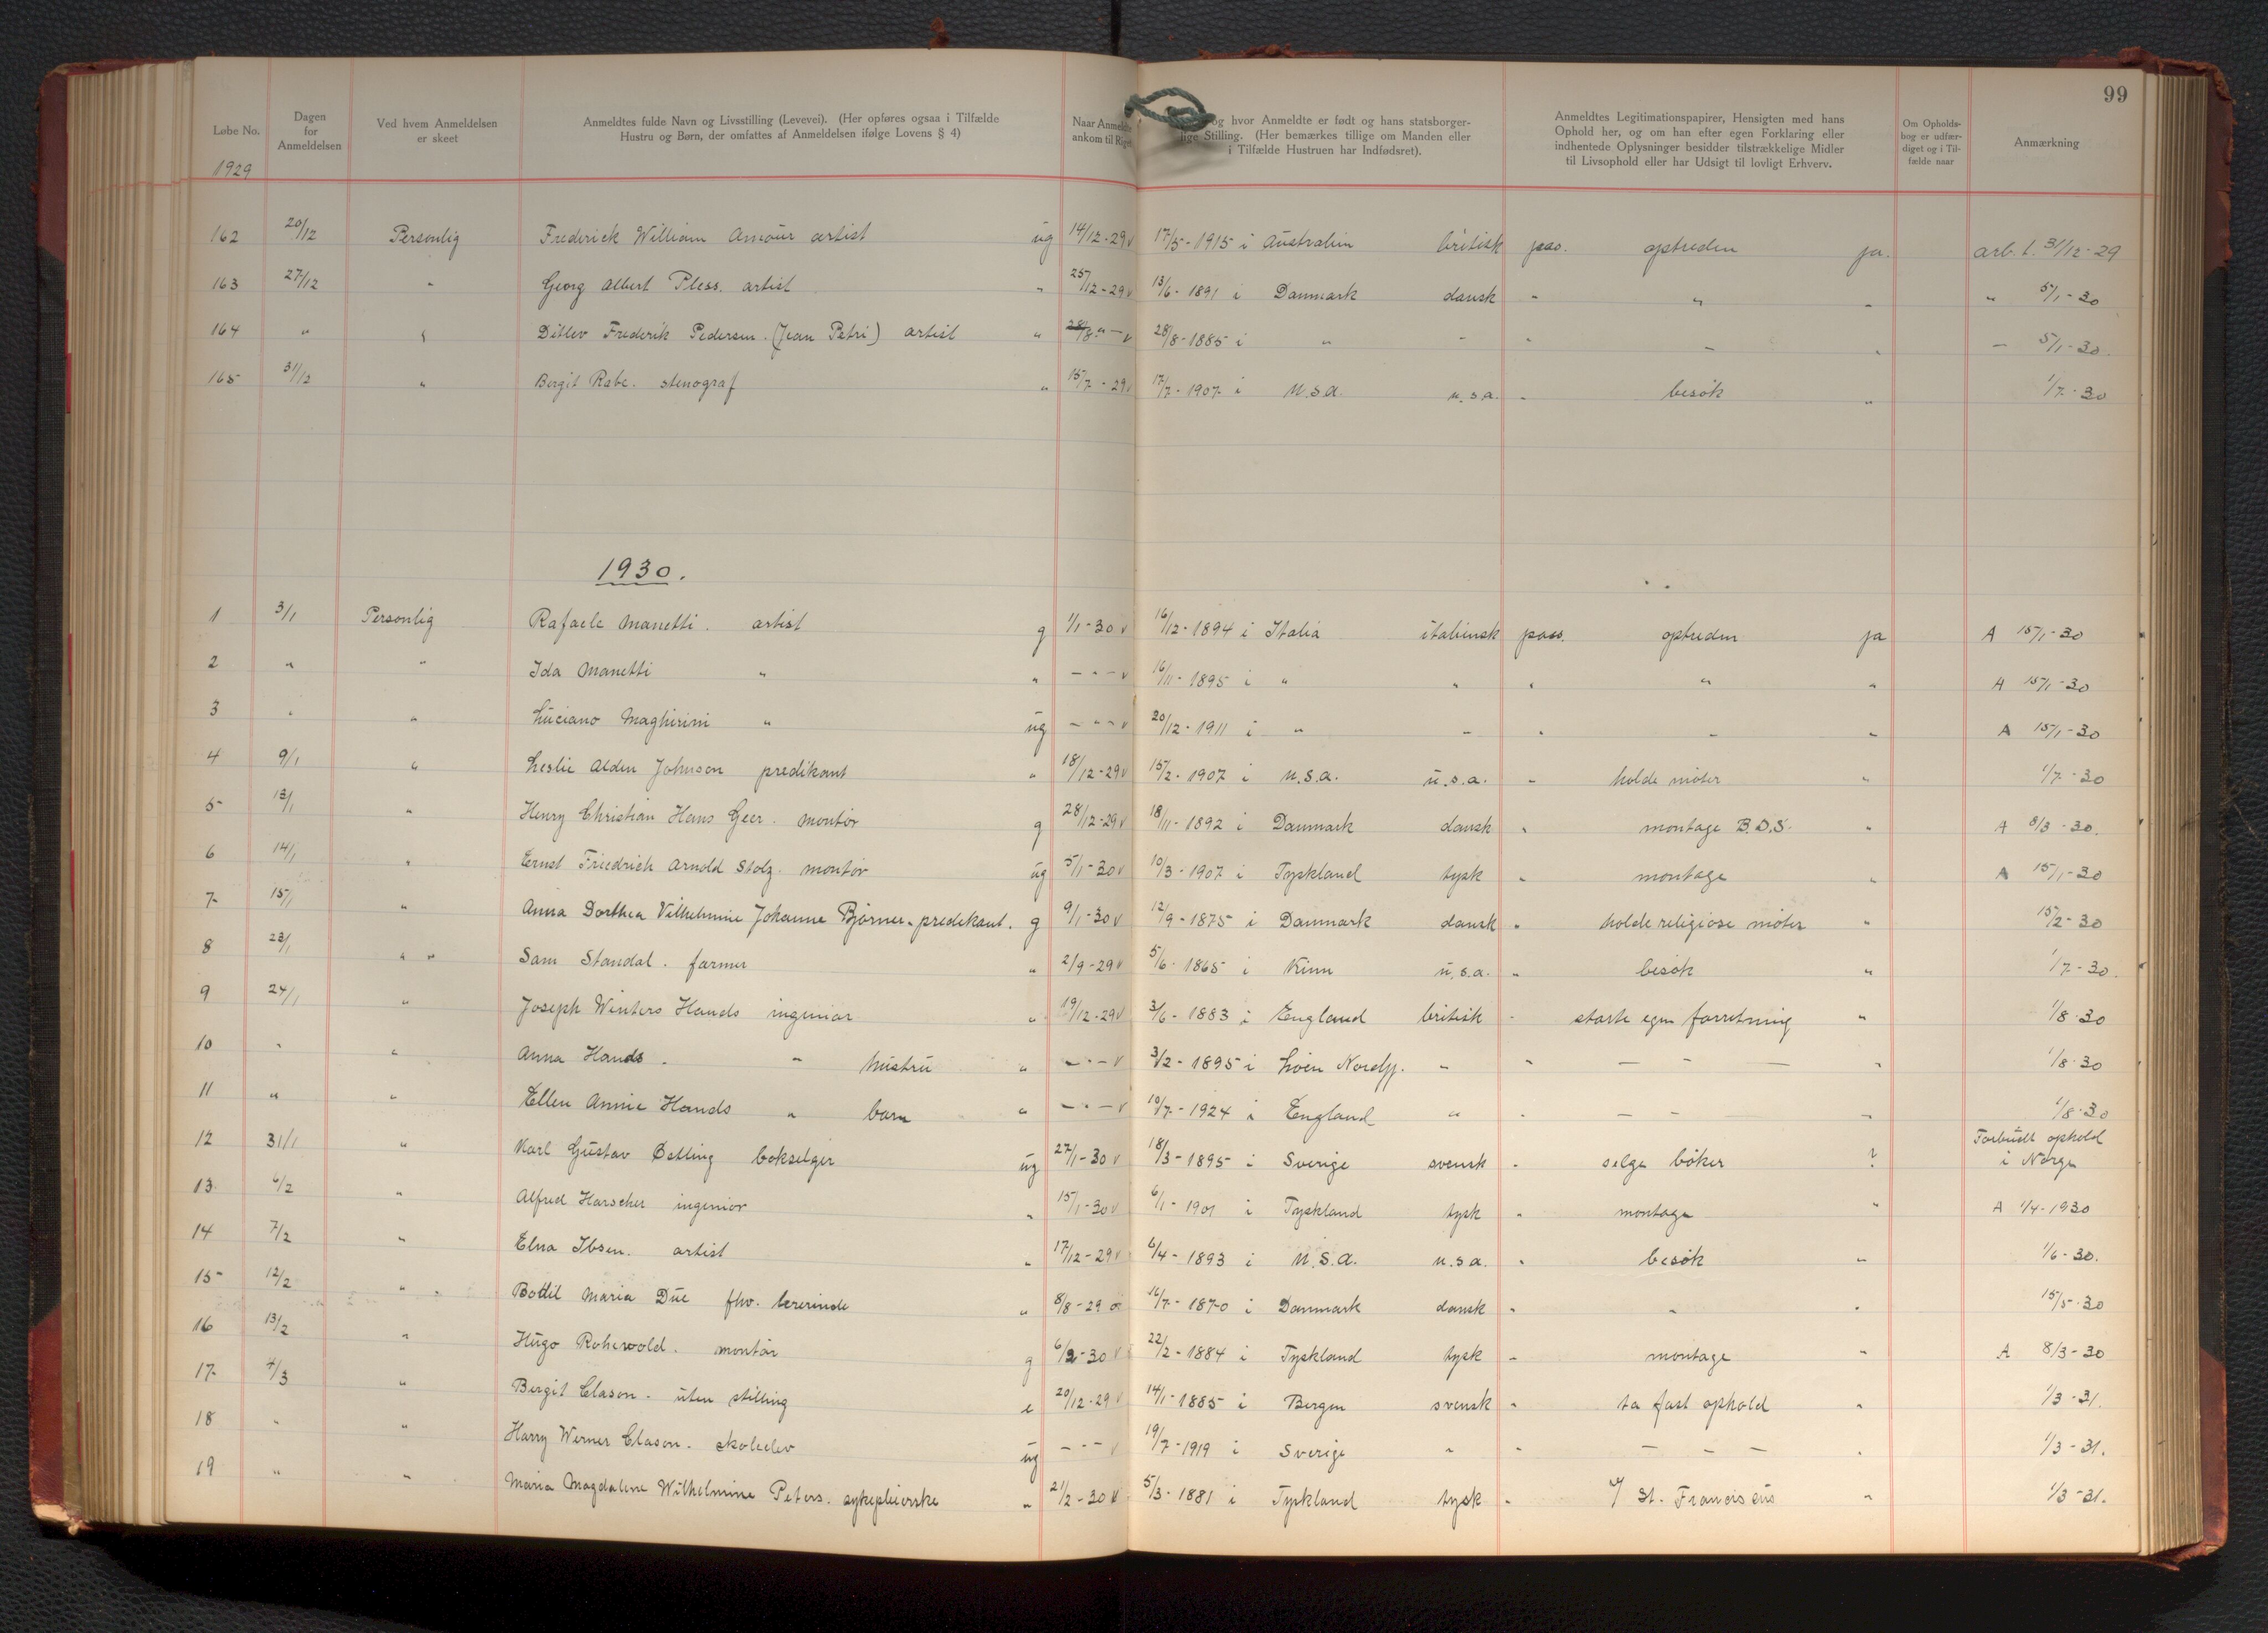 99
Løbe No.
1929
Dagen
for
Anmeldelsen
Ved hvem Anmeldelsen
er skeet
Anmeldtes fulde Navn og Livsstilling (Levevei). (Her opføres ogsaa i Tilfælde
Hustru og Børn, der omfattes af Anmeldelsen ifølge Lovens § 4)
Naar Anmeldte
ankom til Riget
og hvor Anmeldte er født og hans statsborger-
lige Stilling. (Her bemærkes tillige om Manden eller
i Tilfælde Hustruen har Indfødsret).
Anmeldtes Legitimationspapirer, Hensigten med hans
Ophold her, og om han efter egen Forklaring eller
indhentede Oplysninger besidder tilstrækkelige Midler
til Livsophold eller har Udsigt til lovligt Erhverv.
Om Opholds-
bog er udfær-
diget og i Til-
fælde naar
Anmærkning
162 20/12 Personlig Frederick William Amour artist ug 14/12-29 v 17/5-1915 i Australien britisk pas. optreden ja. arb. t. 31/12-29
163 27/12 " Georg Albert Pless. artist " 25/12-29 v 13/6-1891 i Danmark dansk " " " " 5/1-30
164 " " Ditlev Frederik Pedersen. (Jean Petri) artist " 28/8 " - v 28/8-1885 i " " " " " - 5/1-30.
165 31/12 " Bergit Rabe. stenograf " 15/7-29 v 17/7-1907 i U.S.A. u.s.a. " besøk " 1/7-30
1930.
1 3/1 Personlig Rafaele Manetti. artist g 1/1-30 v 16/12-1894 i Italia italiensk pass. optreden ja A 15/1-30
2 " " Ida Manetti " " - " - v 16/11-1895 i " " " " " A 15/1-30
3 " " Luciano Maghirini " ug - " - v 20/12-1911 i " " " " " A 15/1-30
4 9/1 " Leslie Alden Johnson predikant " 18/12-29 v 15/2-1907 i U.S.A. u.s.a. " holde møter " 1/7-30
5 13/1 " Henry Christian Hans Geer. montør g 28/12-29 v 18/11-1892 i Danmark dansk " montage B.D.S. " A 8/3-30.
6 14/1 " Ernst Friedrich Arnold Stolz. montør ug 5/1-30 v 10/3-1907 i Tyskland tysk " montage " A 15/1-30
7 15/1 " Anna Dorthea Vilhelmine Johanne Bjørner - predikant. g 9/1-30 v 12/9-1875 i Danmark dansk " holde religiøse møter " 15/2-30
8 23/1 " " Sam Standal. farmer " 2/9-29 v 5/6-1865 i Kinn u.s.a. " besøk " 1/7-30.
9 24/1 " Joseph Winters Hands ingeniør " 19/12-29 v 3/6-1883 i England britisk " starte egen forretning " 1/8-30
10 " " Anna Hands. " hustru " - " - v 3/2-1895 i Loen Nordfj. " " - " - " 1/8-30
11 " " Ellen Annie Hands " barn " - " - v 10/7-1924 i England " " - " - " 1/8-30
12 31/1 " Karl Gustav Østling bokselger ug 27/1-30 v 18/3-1895 i Sverige svensk " selge bøker ? Forbudt ophold
i Norge
13. 6/2 " Alfred Harscher ingeniør " 15/1-30 v 6/1-1901 i Tyskland tysk " montage " A 1/4-1930
14 7/2 " Elna Ibsen. artist " 17/12-29 v 6/4-1893 i U.S.A. u.s.a. " besøk " 1/6-30.
15 12/2 " Bottil Maria Due fhv. lærerinde " 8/8-29 16/7-1870 i Danmark dansk " " " 15/5-30
16 13/2 " Hugo Rohewold. montør g 6/2-30 v 22/2-1884 i Tyskland tysk " montage " A 8/3-30
17 4/3 " Bergit Clason. uten stilling e 20/12-29 v 14/1-1885 i Bergen svensk " ta fast ophold " 1/3-31.
18 " " Harry Werner Clason. skoleelev ug - " - v 19/7-1919 i Sverige " " - - - " 1/3-31.
19 " " Maria Magdalene Wilhelmine Peters. sykepleierske " 21/2-30 v 5/3-1881 i Tyskland tysk " St. Franciscus " 1/3-31.